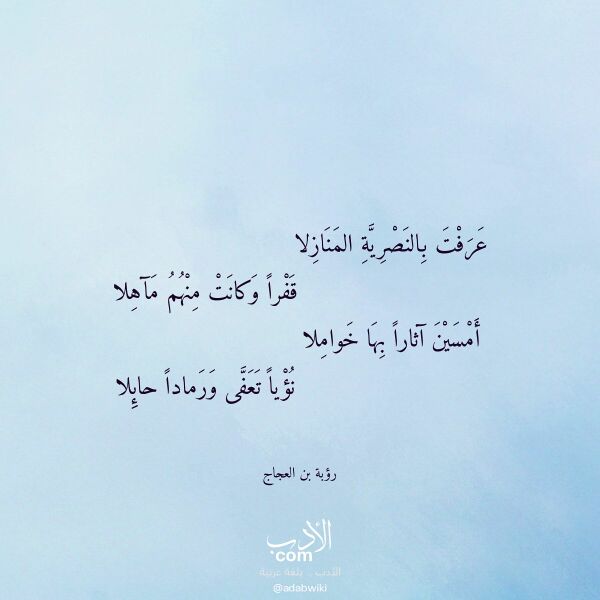 عَرَفْتَ بِالنَصْرِيَّةِ المَنَازِلا
قَفْراً وَكانَتْ مِنْهُمُ مَآهِلا
أَمْسَيْنَ آثاراً بِهَا خَوامِلا
نُؤْياً تَعَفَّى وَرَماداً حائِلا
رؤبة بن العجاج
الأدب
com
الأدب .. بلغة عربية
@adabwiki